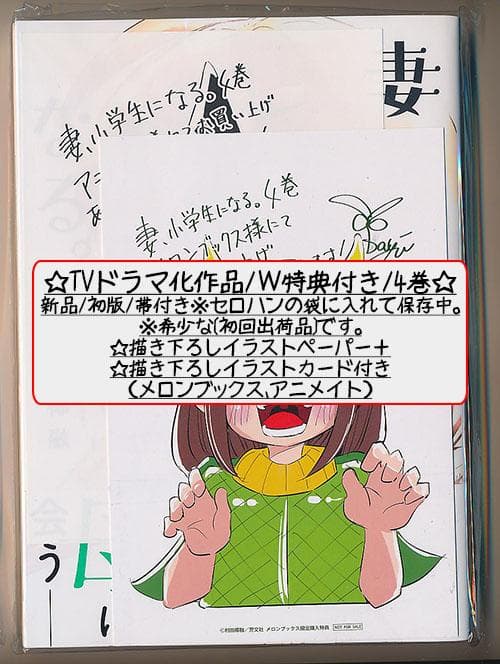 妻
妻、小学生になる。4巻
アニ
お買い上げ
あ
妻、小学生になる。4巻
メロンブックス様にて
☆TVドラマ化作品/W特典付き/4巻☆
新品/初版/帯付き※セロハンの袋に入れて保存中。
※希少な(初回出荷品)です。
☆描き下ろしイラストペーパー+
☆描き下ろしイラストカード付き
(メロンブックス,アニメイト)
う
©村田椰融/芳文社 メロンブックス限定購入特典 NOT FOR SALE